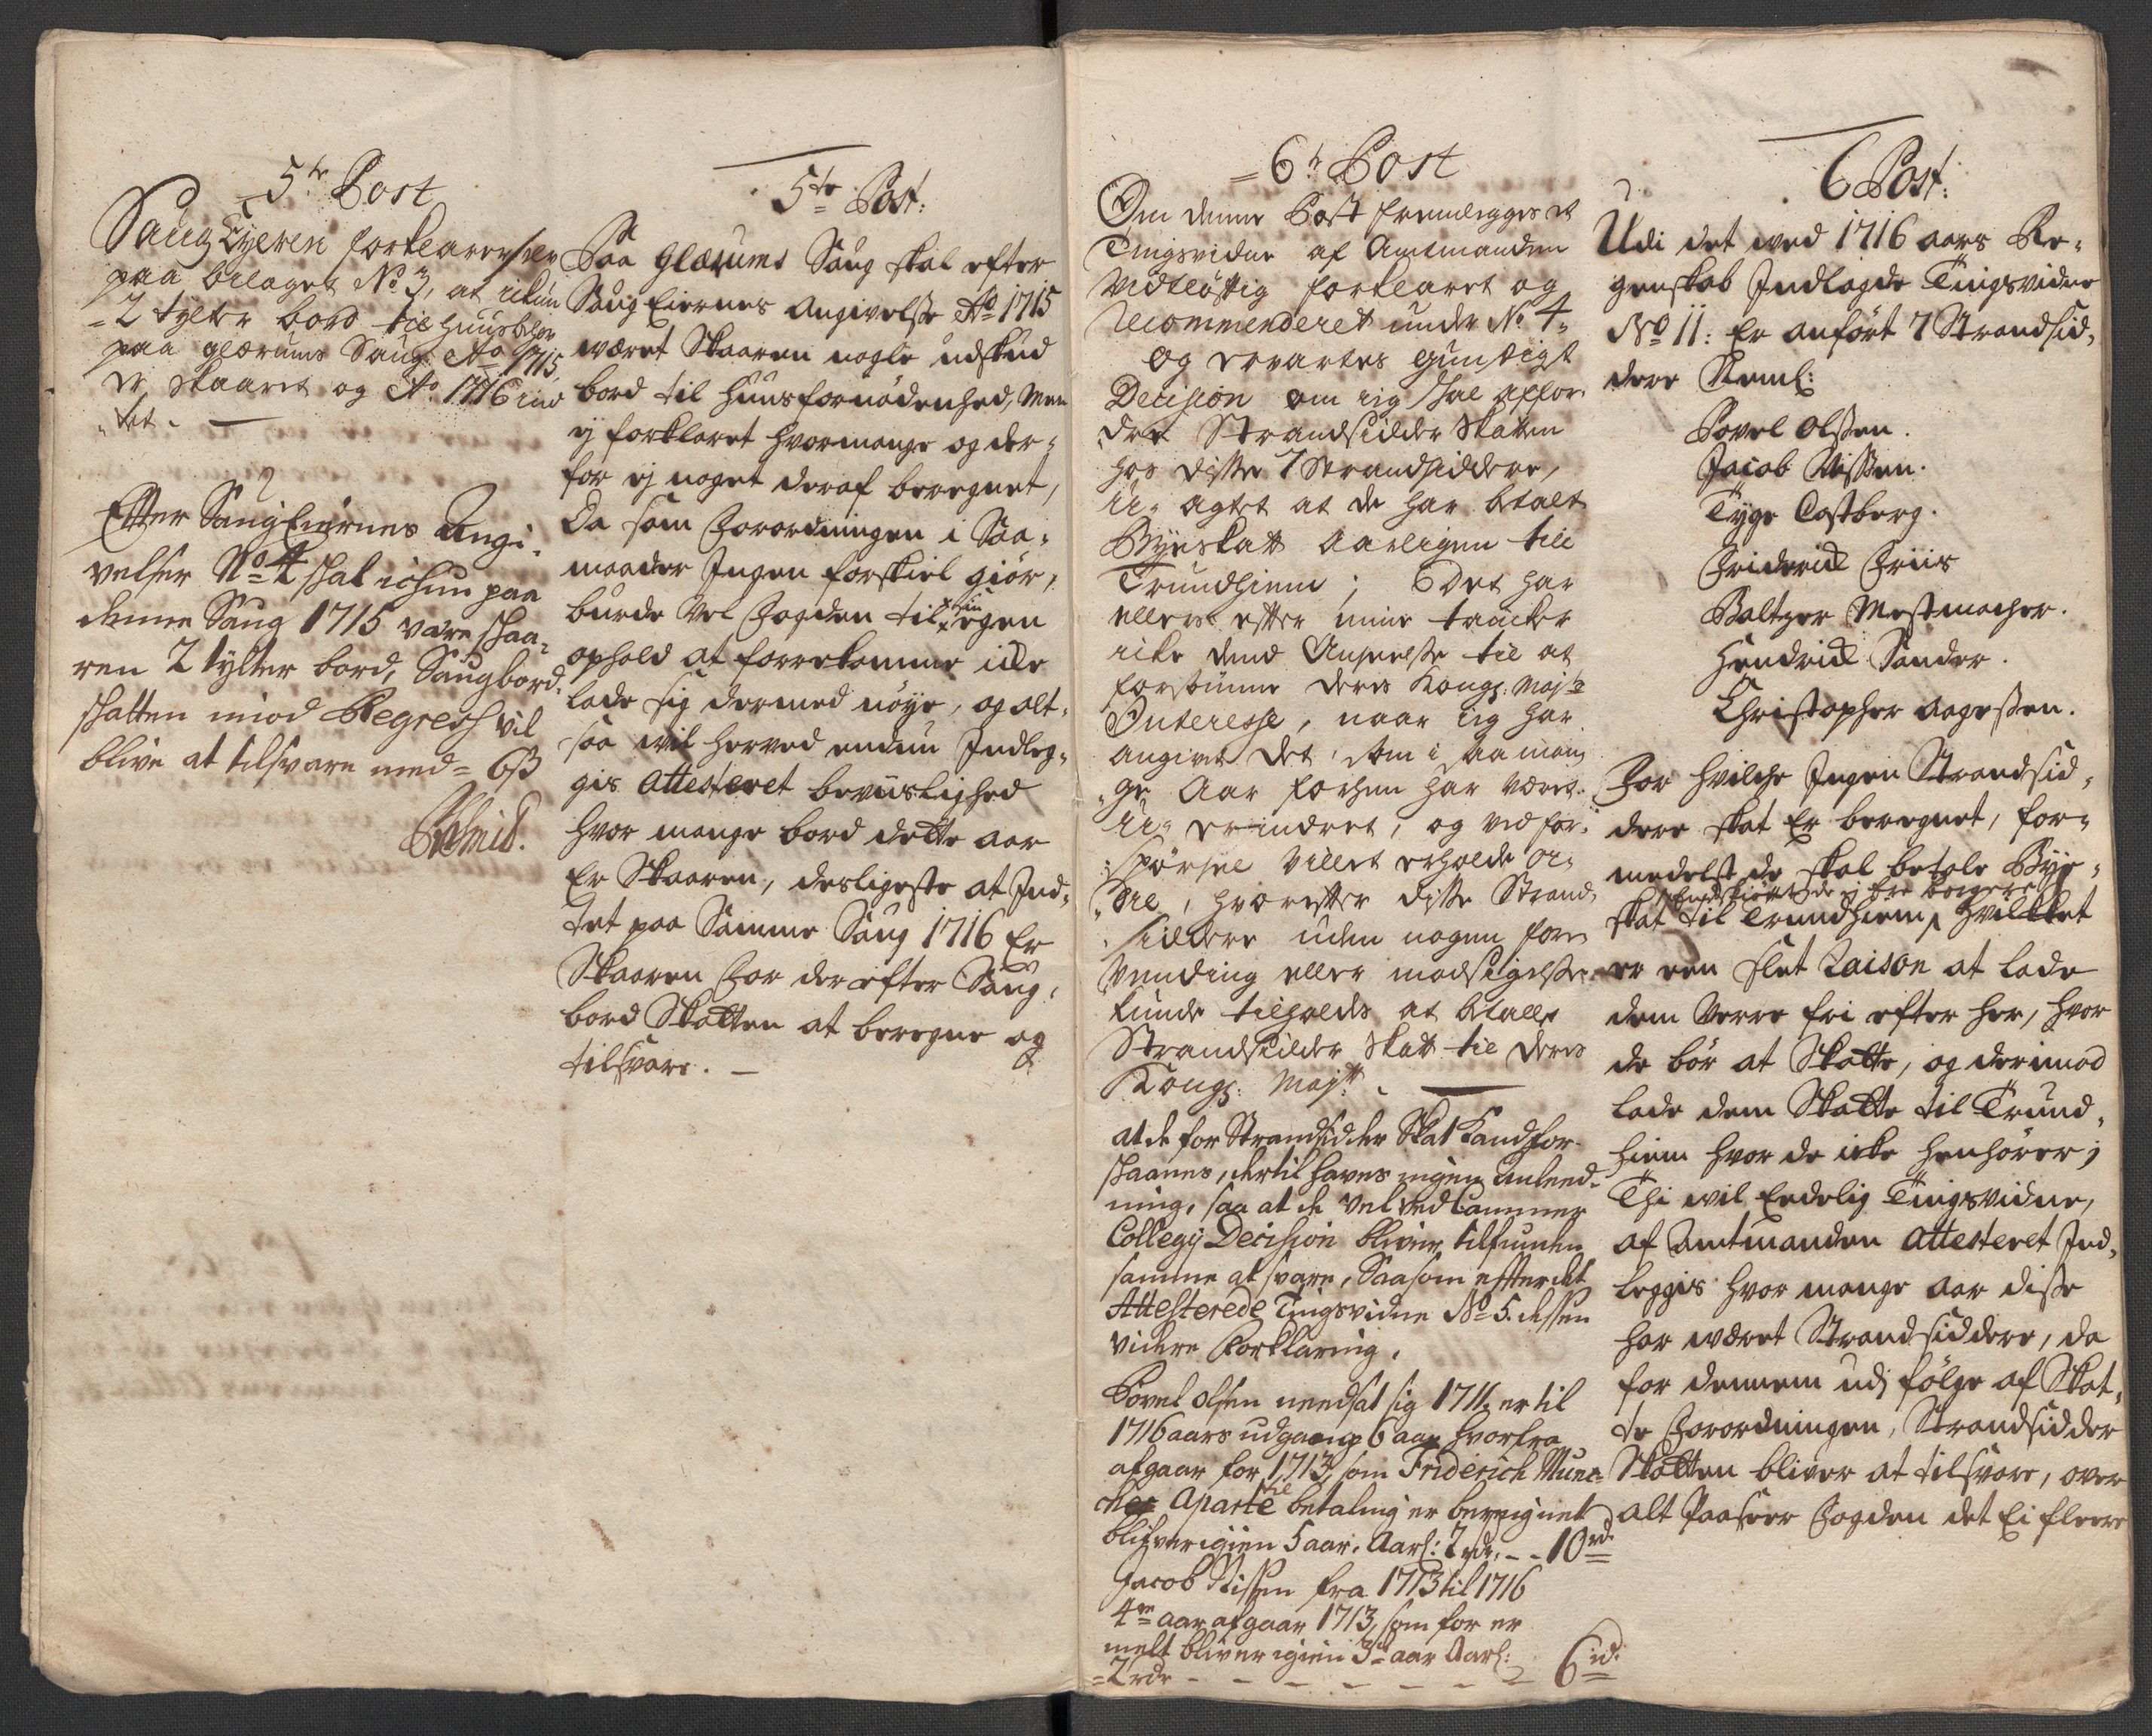 5te Post
Saug Eyeren forklarer selv
paa bilaget No 3, at ickun
2 tylter bord til Huusbehov
paa glærums Saug Ao 1715
er skaaret og Ao 1716 in¬
tet.
Efter Saug Eiernes Angi¬
velser No 4 skal ichun paa
denne Saug 1715 være skaa¬
ren 2 tylter bord, Saugbord
skatten imod Regress vil
blive at tilsvare med = 6ß
5te Post:
Paa Glærums Saug skal efter
Saug Eiernes Angivelse Ao 1715
været Skaaren nogle udskud
bord til Huusfornødenhed, Men
ej forklaret hvormange og der¬
for ej noget deraf beregnet,
Da som Forordningen i Saa¬
maader Ingen forskiel giør,
burde vel Fogden til egen
ophold at forrekomme icke
lade sig dermed nøye, og alt¬
saa vil herved endnu Indleg¬
gis attesteret beviislighed
hvor mange bord dette aar
Er Skaaren, desligeste at In¬
tet paa Samme Saug 1716 Er
Skaaren For der efter Saug¬
bord Skatten at beregne og
tilsvare.
6te Post
Om denne Post fremlegges et
Tingsvidne af Amtmanden
vidtløftig forklaret og
recommenderet under No 4
og ervartes gunstigt
Decision om jeg skal affor¬
dre Strandsidder Skatten
hos disse 7 Strandsiddere,
u-agtet at de har betalt
Byeskatt aarligen till
Trundhiem; Det har
ellers efter mine tancker
icke dend Anseelse til at
forsømme Deres Kongs: Majts
Interesse, naar jeg har
angivet det, som i saa man¬
ge Aar forhen har været
u-erindret, og ved for¬
spørsel villet erholde or¬
dre, hvorefter disse Strand¬
siddere uden nogen fore¬
vending eller modsigelse
kunde tilholdes at betalle
Strandsidder Skatt til Deres
Kongs: Majtt
at de for Strandsidder Skat kand for¬
skaanes, dertil haves ingen anleed¬
ning, saa at de vel ved Cammer
Collegij Decision bliver tilfunden
samme at svare, Saasom efter det
Attesterede Tingsvidne No 5. dessen
videre Forklaring.
Povel Olsen needsat sig 1711 er til
1716 aars udgang 6 aar hvorfra
afgaar for 1713, som Friderich Mun¬
ches aparte betaling er beregnet
blifver igien 5 aar, Aarl: 2 rdr, - - 10 rd
Jacob Nissen fra 1713 til 1716
4re aar afgaar 1713, som for er
melt bliver igien 3 aar Aarl:
2 rdr - - - - - - - 6 rd:
6 Post:
Udi det med 1716 aars Re¬
genskab Indlagde Tingsvidne
No 11: Er anført 7 Strandsid¬
dere Neml:
Povel Olsen.
Jacob Nissen.
Tyge Castberg.
Friderich Friis
Baltzer Mestmacher.
Hendrich Sander.
Christopher Aagesen.
For hvilche Ingen Strandsid¬
dere skat Er beregnet, for¬
medelst de skal betale Bye¬
Endskiønt de ej ere borgere
skat til Trundhiem, hvilcket
er een slet Raison at lade
dem Verre fri efter her, hvor
de bør at Skatte, og derimod
lade dem Skatte til Trund¬
hiem hvor de icke henhører;
Thi vil Endelig Tingsvidne,
af Amtmanden attesteret Ind¬
leggis hvor mange aar disse
har været Strandsiddere, da
for dennem udj følge af Skat¬
te Forordningen, Strandsidder
Skatten bliver at tilsvare, over
alt Paaseer Fogden det Ei fleere